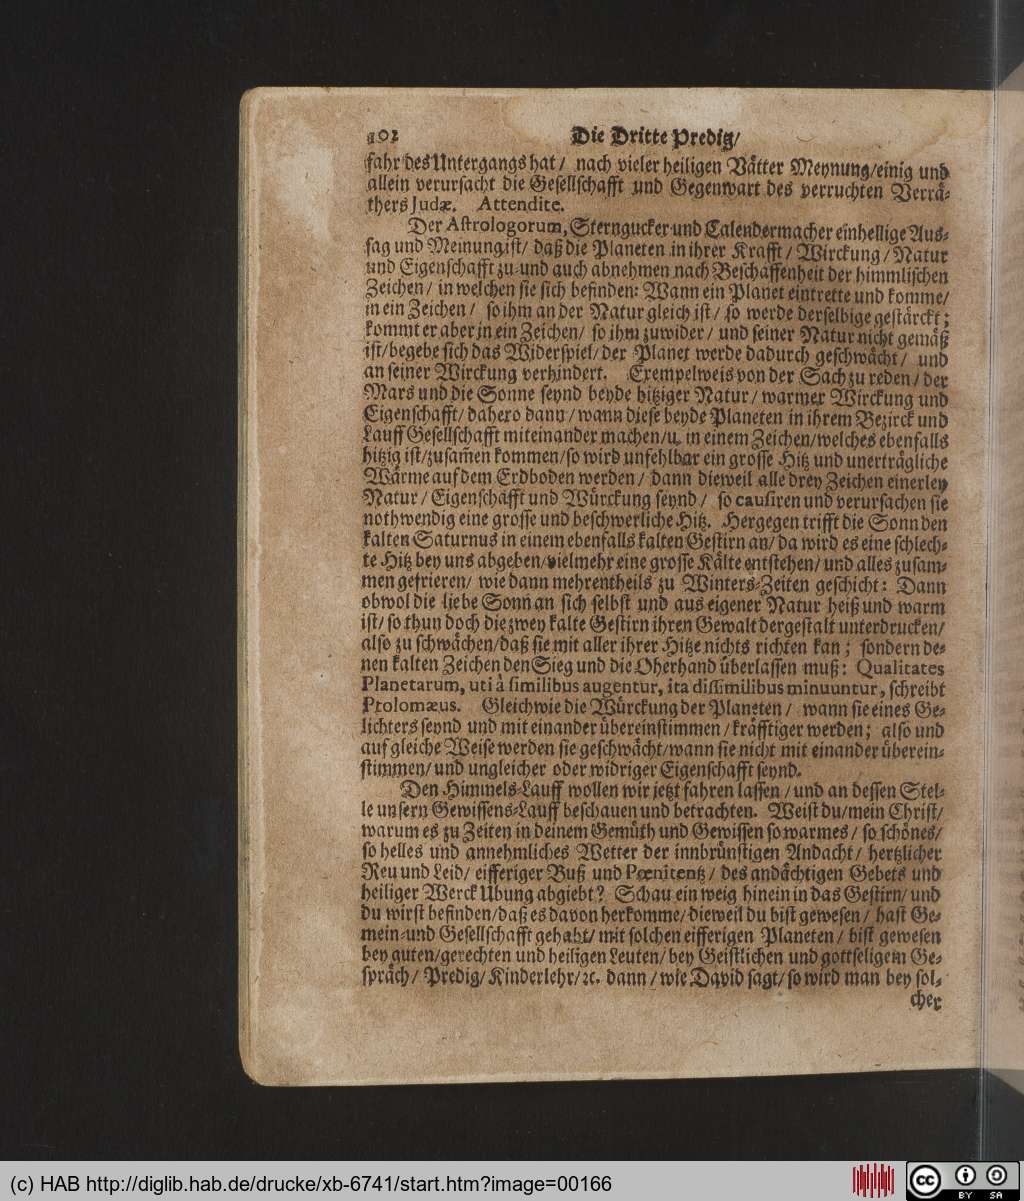 Die Dritte Predig/
fahr des Untergangs hat/ nach vieler heiligen Vätter Meynung/einig und
allein verursacht die Gesellschafft und Gegenwart des verruchten Verrä-
thers Judæ. Attendite.
Der Astrologorum, Sterngucker und Calendermacher einhellige Aus-
sag und Meinung ist/ daß die Planeten in ihrer Krafft/ Wirckung/ Natur
und Eigenschafft zu-und auch abnehmen nach Beschaffenheit der himmlischen
Zeichen/ in welchen sie sich befinden: Wann ein Planet eintrette und komme/
in ein Zeichen/ so ihm an der Natur gleich ist/ so werde derselbige gestärckt;
kommt er aber in ein Zeichen/ so ihm zuwider/ und seiner Natur nicht gemäß
ist/begebe sich das Widerspiel/ der Planet werde dadurch geschwächt/ und
an seiner Wirckung verhindert. Exempelweis von der Sach zu reden/ der
Mars und die Sonne seynd beyde hitziger Natur/ warmer Wirckung und
Eigenschafft/ dahero dann/ wann diese beyde Planeten in ihrem Bezirck und
Lauff Gesellschafft miteinander machen/u. in einem Zeichen/welches ebenfalls
hitzig ist/zusam̃en kommen/so wird unfehlbar ein grosse Hitz und unerträgliche
Wärme auf dem Erdboden werden/ dann dieweil alle drey Zeichen einerley
Natur/ Eigenschafft und Würckung seynd/ so causiren und verursachen sie
nothwendig eine grosse und beschwerliche Hitz. Hergegen trifft die Sonn den
kalten Saturnus in einem ebenfalls kalten Gestirn an/ da wird es eine schlech-
te Hitz bey uns abgeben/vielmehr eine grosse Kälte entstehen/ und alles zusam-
men gefrieren/ wie dann mehrentheils zu Winters-Zeiten geschicht: Dann
obwol die liebe Sonn an sich selbst und aus eigener Natur heiß und warm
ist/ so thun doch die zwey kalte Gestirn ihren Gewalt dergestalt unterdrucken/
also zu schwächen/daß sie mit aller ihrer Hitze nichts richten kan; sondern de-
nen kalten Zeichen den Sieg und die Oberhand überlassen muß: Qualitates
Planetarum, uti à similibus augentur, ita dissimilibus minuuntur, schreibt
Ptolomæus. Gleichwie die Würckung der Planeten/ wann sie eines Ge-
lichters seynd und mit einander übereinstimmen/ kräfftiger werden; also und
auf gleiche Weise werden sie geschwächt/wann sie nicht mit einander überein-
stimmen/ und ungleicher oder widriger Eigenschafft seynd.
Den Himmels-Lauff wollen wir jetzt fahren lassen/ und an dessen Stel-
le unsern Gewissens-Lauff beschauen und betrachten. Weist du/mein Christ/
warum es zu Zeiten in deinem Gemüth und Gewissen so warmes/ so schönes/
so helles und annehmliches Wetter der innbrünstigen Andacht/ hertzlicher
Reu und Leid/ eifferiger Buß und Pœnitentz/ des andächtigen Gebets und
heiliger Werck Ubung abgiebt? Schau ein wenig hinein in das Gestirn/ und
du wirst befinden/daß es davon herkomme/dieweil du bist gewesen/ hast Ge-
mein-und Gesellschafft gehabt/ mit solchen eifferigen Planeten/ bist gewesen
bey guten/gerechten und heiligen Leuten/ bey Geistlichen und gottseligem Ge-
spräch/ Predig/ Kinderlehr/ꝛc. dann/ wie David sagt/ so wird man bey sol-
cher
(c) HAB http://diglib.hab.de/drucke/xb-6741/start.htm?image=00166
cc
BY SA